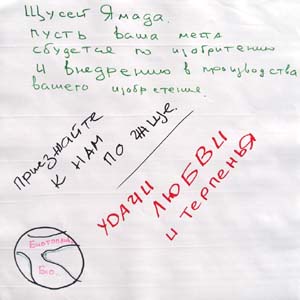 Щусей Ямада.
пусть ваша мета
сбудется по изобритению
и внедрению в производства
вашего изобретение.
приезжайте
к нам
по чаще.
УДАЧИ
ЛЮБВИ
и терпенья
Био.